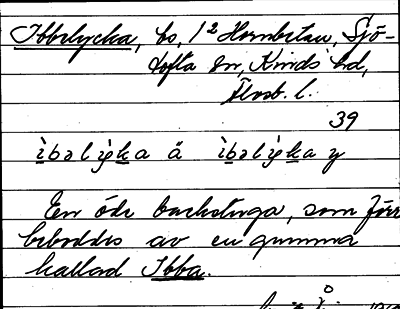 Ibbelycka, bs, 1² Hornbetan, Sjö-
tofta sn, Kinds hd,
Älvsb. l.
39
ìbəlỳka å ìbəlỳka y
En öde backstuga, som förr
beboddes av en gumma
kallad Ibba.